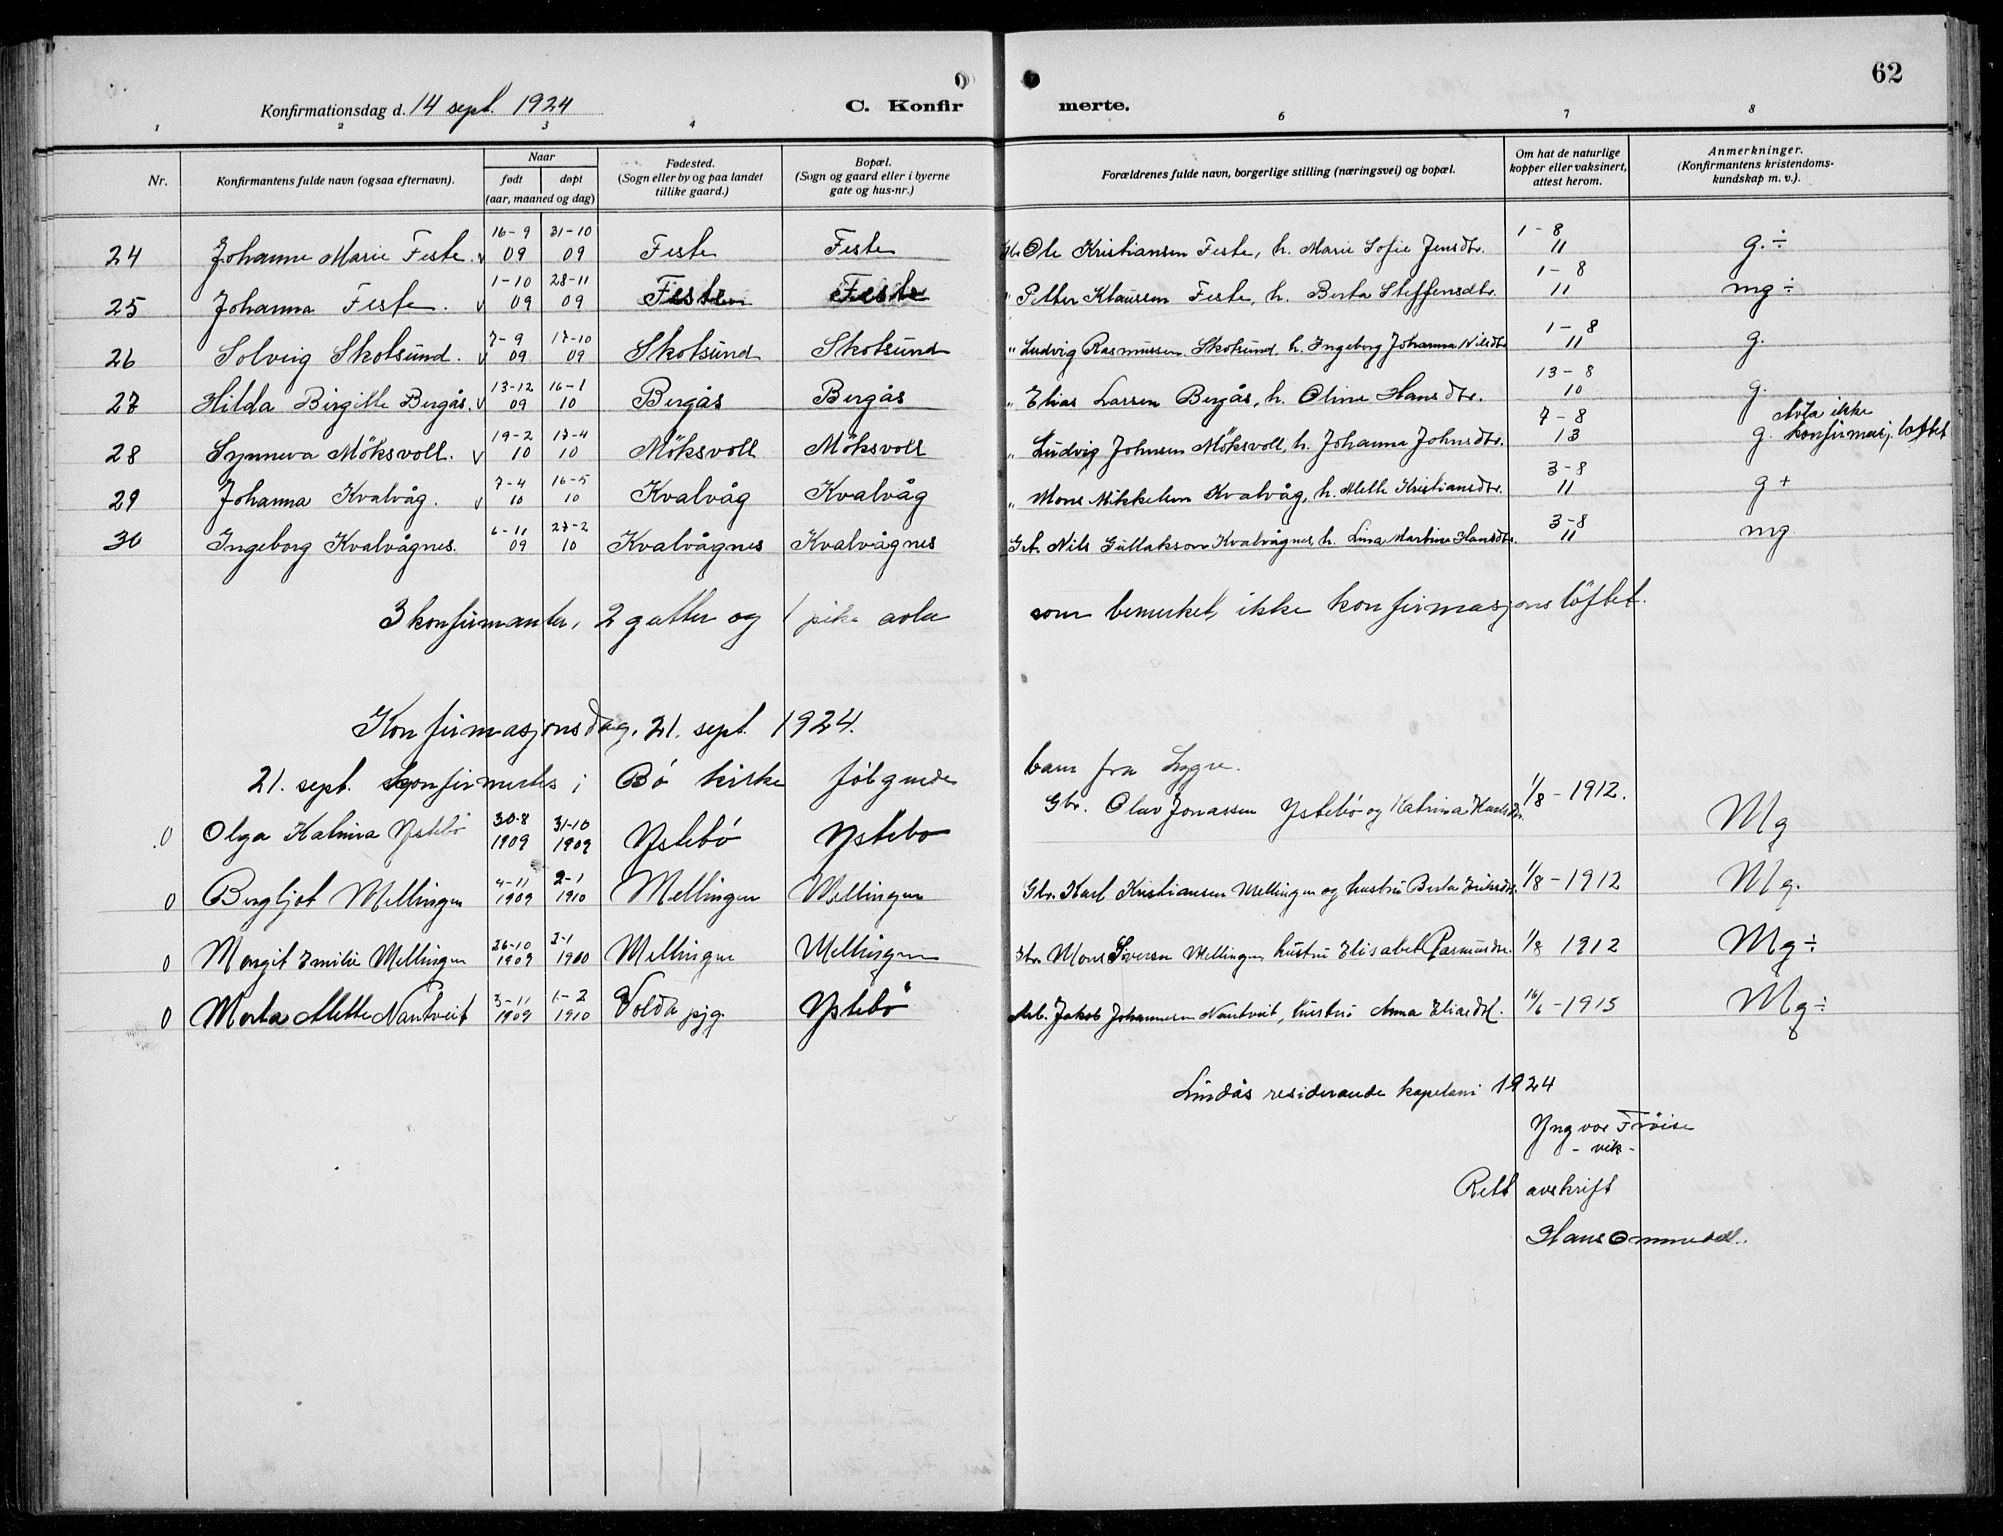 62
Konfirmationsdag d. 14 sept. 1924 C. Konfir merte.
1 2 3 4 6 7 8
Nr. Konfirmantens fulde navn (ogsaa efternavn). Naar født døpt (aar, maaned og dag) Fødested. (Sogn eller by og paa landet tillike gaard.) Bopæl. (Sogn og gaard eller i byerne gate og hus-nr.) Forældrenes fulde navn, borgerlige stilling (næringsvei) og bopæl. Om hat de naturlige kopper eller vaksinert, attest herom. Anmerkninger. (Konfirmantens kristendoms-kundskap m. v.).
24 Johanne Marie Feste. v 16-9 09 31-10 09 Feste Feste Gbr. Ole Kristiansen Feste, h. Marie Sofie Jensdtr. 1-8 11 g. ÷
25 Johanna Feste. v 1-10 09 28-11 09 Feste Feste " Petter Klaussen Feste, h. Berta Steffensdtr. 1-8 11 mg ÷
26 Solveig Skotsund. v 7-9 09 17-10 09 Skotsund Skotsund " Ludvig Rasmussen Skotsund, h. Ingeborg Johanna Nilsdtr 1-8 11 g.
27 Hilda Birgitte Bergås. v 13-12 09 16-1 10 Bergås Bergås " Elias Larsen Bergås, h. Oline Hansdtr. 13-8 10 g.
28 Synneva Möksvoll. v 19-2 10 17-4 10 Möksvoll Möksvoll " Ludvig Johnsen Möksvoll, h. Johanna Johnsdtr. 7-8 13 g. Avla ikke konfirmasj. løftet
29 Johanna Kvalvåg. v 7-4 10 16-5 10 Kvalvåg Kvalvåg " Mons Mikkelsen Kvalvåg, h. Mette Kristiansdtr. 3-8 11 g +
30 Ingeborg Kvalvågnes. 6-11 09 27-2 10 Kvalvågnes Kvalvågnes Gbr. Nils Gullakson Kvalvågnes, h. Lina Martine Hansdtr. 3-8 11 mg.
3 konfirmanter, 2 gutter og 1 pike avla som bemerket, ikke konfirmasjonsløftet.
Konfirmasjonsdag. 21. sept. 1924.
21. sept. konfirmertes i Bö kirke følgende barn fra Lygre.
0 Olga Katrina Ystebö 30-8 1909 31-10 1909 Ystebö Ystebo Gbr. Olav Jonassen Ystebö og Katrina Karlsdtr. 1/8 - 1912. Mg
0 Bergljot Mellingen 4-11 1909 2-1 1910 Mellingen Mellingen Gbr. Karl Kristiansen Mellingen og hustru Berta Eriksdtr. 1/8 - 1912 Mg.
0 Margit Emilie Mellingen 26-10 1909 2-1 1910 Mellingen Mellingen Gbr. Mons Siversen Mellingen hustru Elisabet Rasmusdtr. 1/8 1912 Mg ÷
0 Marta Mette Nautveit 3-11 1909 1-2 1910 Volda pjg. Ystebö Arb. Jakob Johannesen Nautveit, hustru Anna Eliasdt. 16/6 - 1915 Mg ÷
Lindås residerande kapelani 1924
Yngvar Fröise
- vik -
Rett avskrift
Hans Ommedal.